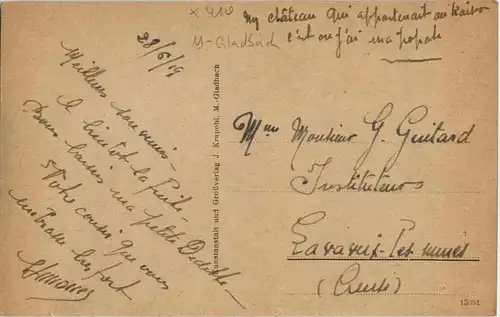 x 410
M-Gladbach
un château qui appartenait au Kaiser
c'est où j'ai ma popote
28/6/19
Meilleurs souvenirs -
à bientôt la
Bons baisers ma petite Dédette -
Votre cousin qui vous
embrasse bien fort
Kunstanstalt und Großverlag J. Krapohl, M.-Gladbach
Mme Monsieur G. Guitard
Instituteurs
Lavaveix-les-mines
(Creuse)